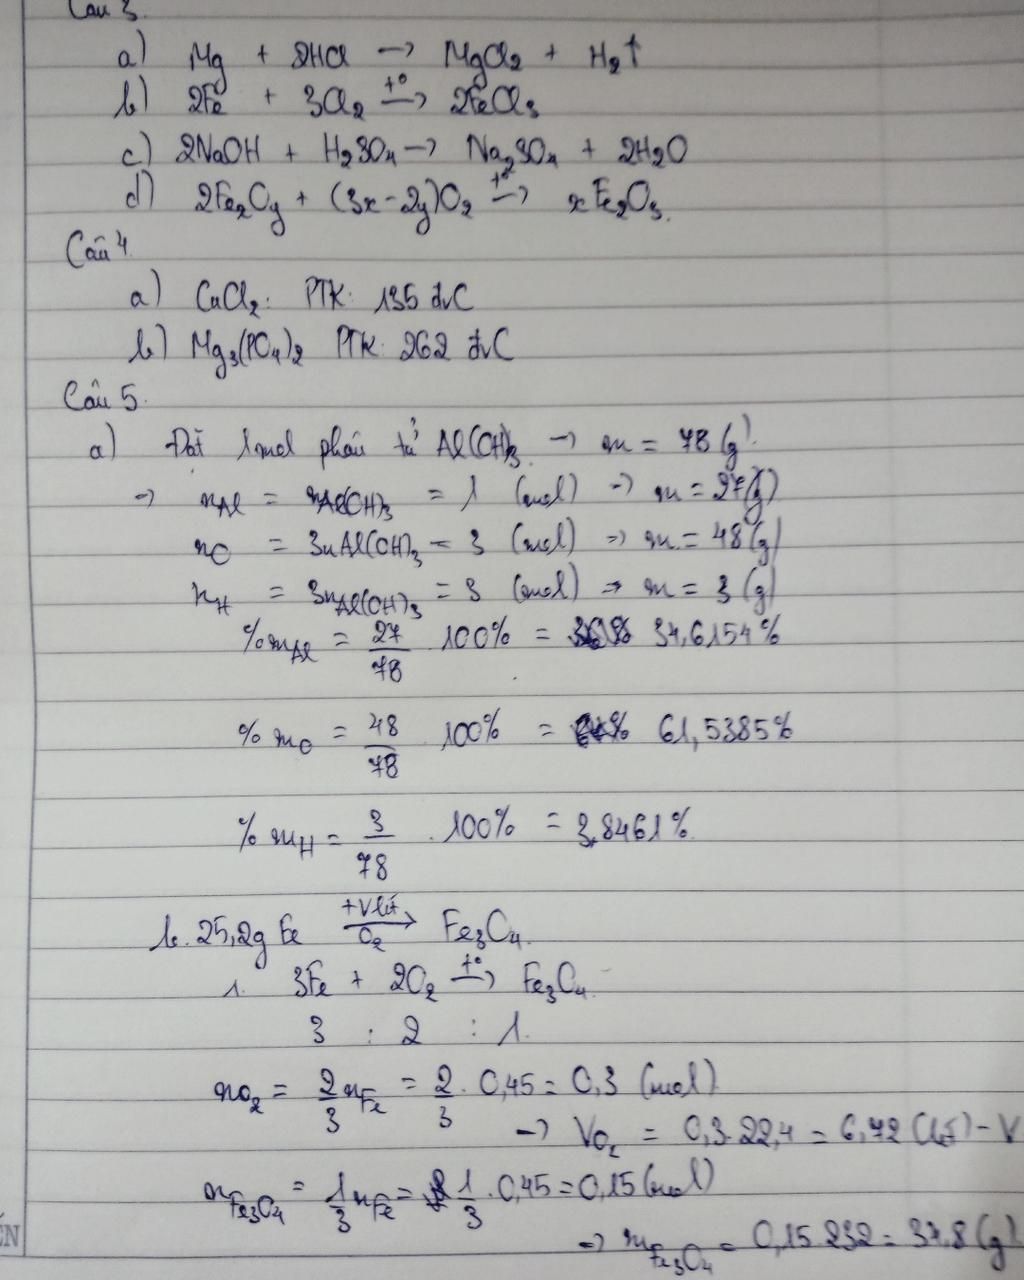 Câu 3.
a) Mg + 2HCl → MgCl2 + H2↑
b) 2Fe + 3Cl2 t°→ 2FeCl3
c) 2NaOH + H2SO4 → Na2SO4 + 2H2O
d) 2FexOy + (3x-2y)O2 t°→ xFe2O3.
Câu 4.
a) CuCl2: PTK: 135 đvC
b) Mg3(PO4)2 PTK: 262 đvC
Câu 5.
a) Đặt 1 mol phân tử Al(OH)3 → m = 78 (g).
→ nAl = nAl(OH)3 = 1 (mol) → m = 27(g)
nO = 3nAl(OH)3 = 3 (mol) → m = 48(g)
nH = 3nAl(OH)3 = 3 (mol) → m = 3 (g)
%mAl = 27/78 100% = 34,6154%
%mO = 48/78 100% = 61,5385%
%mH = 3/78 . 100% = 3,8461%.
b. 25,2g Fe +V lít O2→ Fe3O4.
1. 3Fe + 2O2 t°→ Fe3O4.
3 : 2 : 1.
nO2 = 2/3 nFe = 2/3 . 0,45 = 0,3 (mol)
→ VO2 = 0,3.22,4 = 6,72 (lít) = V
nFe3O4 = 1/3 nFe = 1/3 . 0,45 = 0,15(mol)
→ mFe3O4 = 0,15.232 = 34,8 (g)